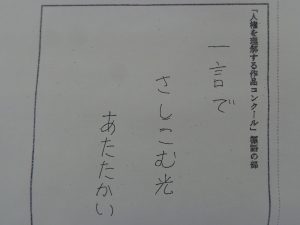 「人権を理解する作品コンクール」標語の部
一言で
さしこむ光
あたたかい